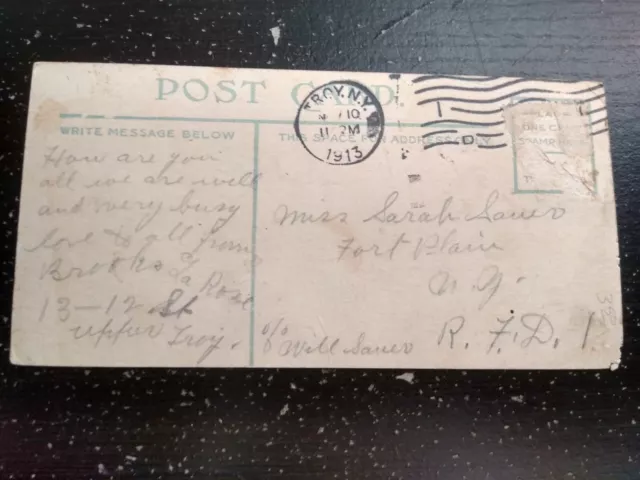 POST CARD.
TROY, N.Y.
10
11 PM
1913
WRITE MESSAGE BELOW
THIS SPACE FOR ADDRESS ONLY
PLACE
ONE CENT
STAMP
How are you
all we are well
and very busy
love to all from
Brooks &
Rose
13-12 St
upper Troy.
Miss Sarah Sauer
Fort Plain
N.Y.
R. F. D. 1.
c/o Will Sauer